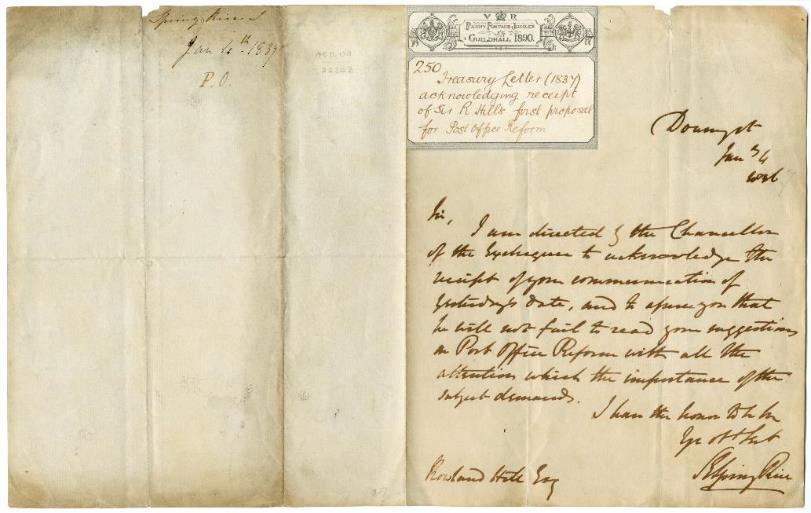 Spring Rice's
Jan 4th 1837
P.O.
V R
PENNY POSTAGE JUBILEE
GUILDHALL 1890.
250
Treasury Letter (1837)
acknowledging receipt
of Sir R Hill's first proposal
for Post Office Reform
Downg St
Jan 4
Sir,
I am directed by the Chancellor
of the Exchequer to acknowledge the
receipt of your communication of
yesterday's date, and to assure you that
he will not fail to read your suggestions
on Post Office Reform with all the
attention which the importance of the
subject demands.
I have the honor to be
Yr obt Sert
Spring Rice
Rowland Hill Esq